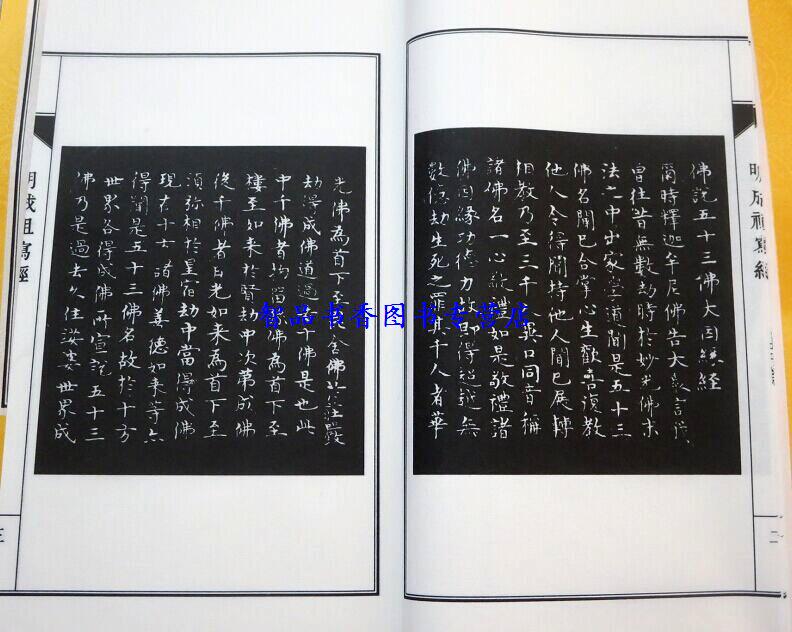 佛說五十三佛大因緣經
爾時釋迦牟尼佛告大眾言我
曾往昔無數劫時於妙光佛末
法之中出家學道聞是五十三
佛名聞已合掌心生歡喜復教
他人令得聞持他人聞已展轉
相教乃至三千人異口同音稱
諸佛名一心敬禮如是敬禮諸
佛因緣功德力故即得超越無
數億劫生死之罪其千人者華
光佛為首下至毗舍佛於莊嚴
劫得成佛道過去千佛是也此
中千佛者拘留佛為首下至
樓至如來於賢劫中次第成佛
後千佛者日光如來為首下至
須弥相於星宿劫中當得成佛
現在十方諸佛善德如來等亦
得聞是五十三佛名故於十方
世界各得成佛所宣說五十三
佛乃是過去久住娑婆世界成
明成祖寫經
二
明成祖寫經
三
智品书香图书专营店